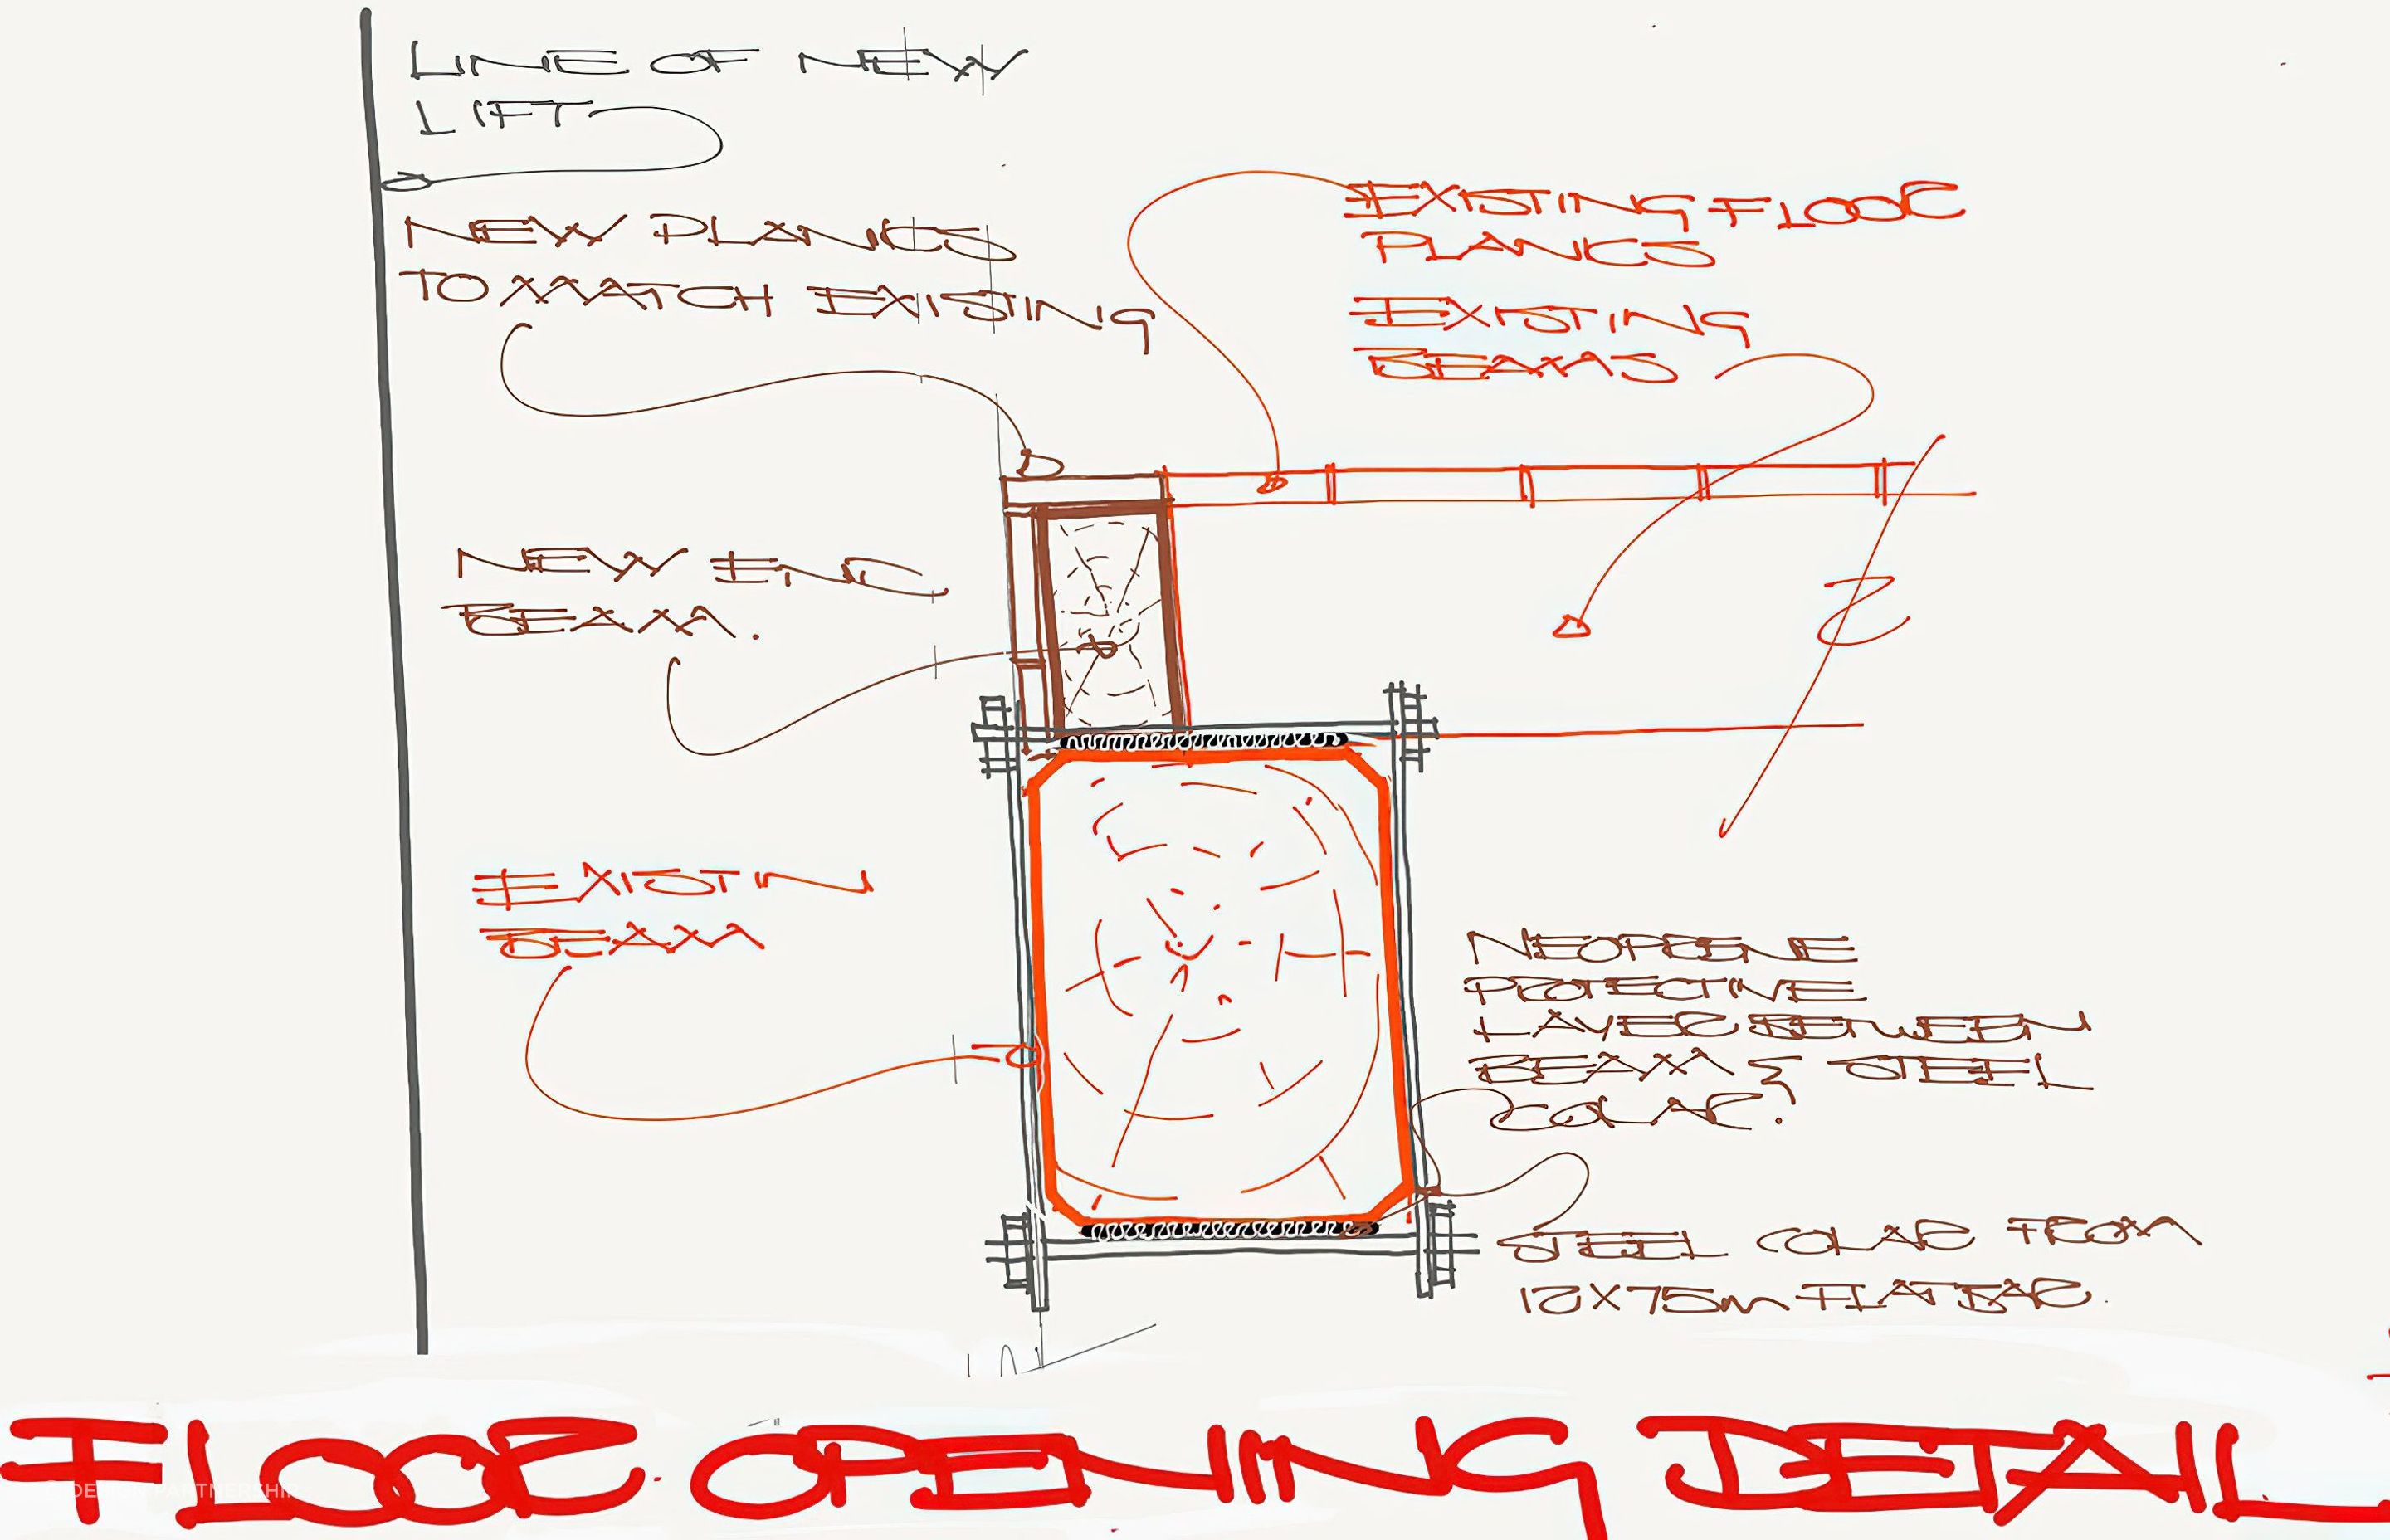 LINE OF NEW
LIFT
NEW PLANCS
TO MATCH EXISTING
EXISTING FLOOR
PLANCS
EXISTING
BEAMS
NEW END
BEAM.
EXISTIN
BEAM
NEOPRENE
PROTECTIVE
LAYER BETWEEN
BEAM & STEEL
COLAR.
STEEL COLAR FROM
12X75m FLATBAR.
FLOOR OPENING DETAIL